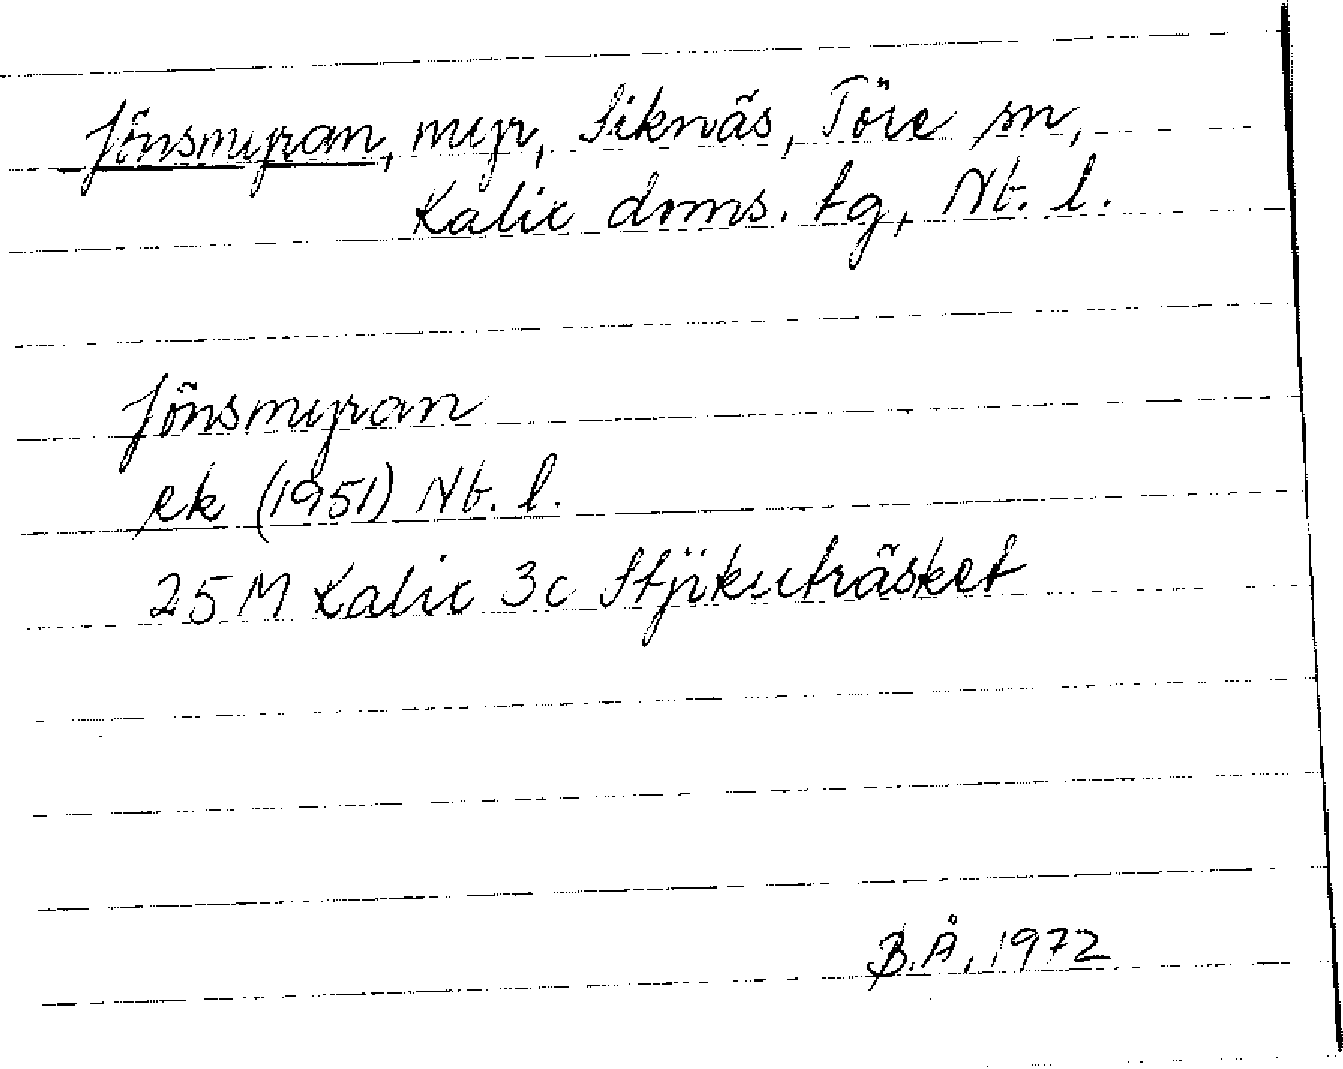 Jönsmyran, myr, Siknäs, Töre sn,
Kalix doms. tg, Nb. l.
Jönsmyran
ek (1951) Nb. l.
25 M Kalix 3c Stijkuträsket
B.Å, 1972